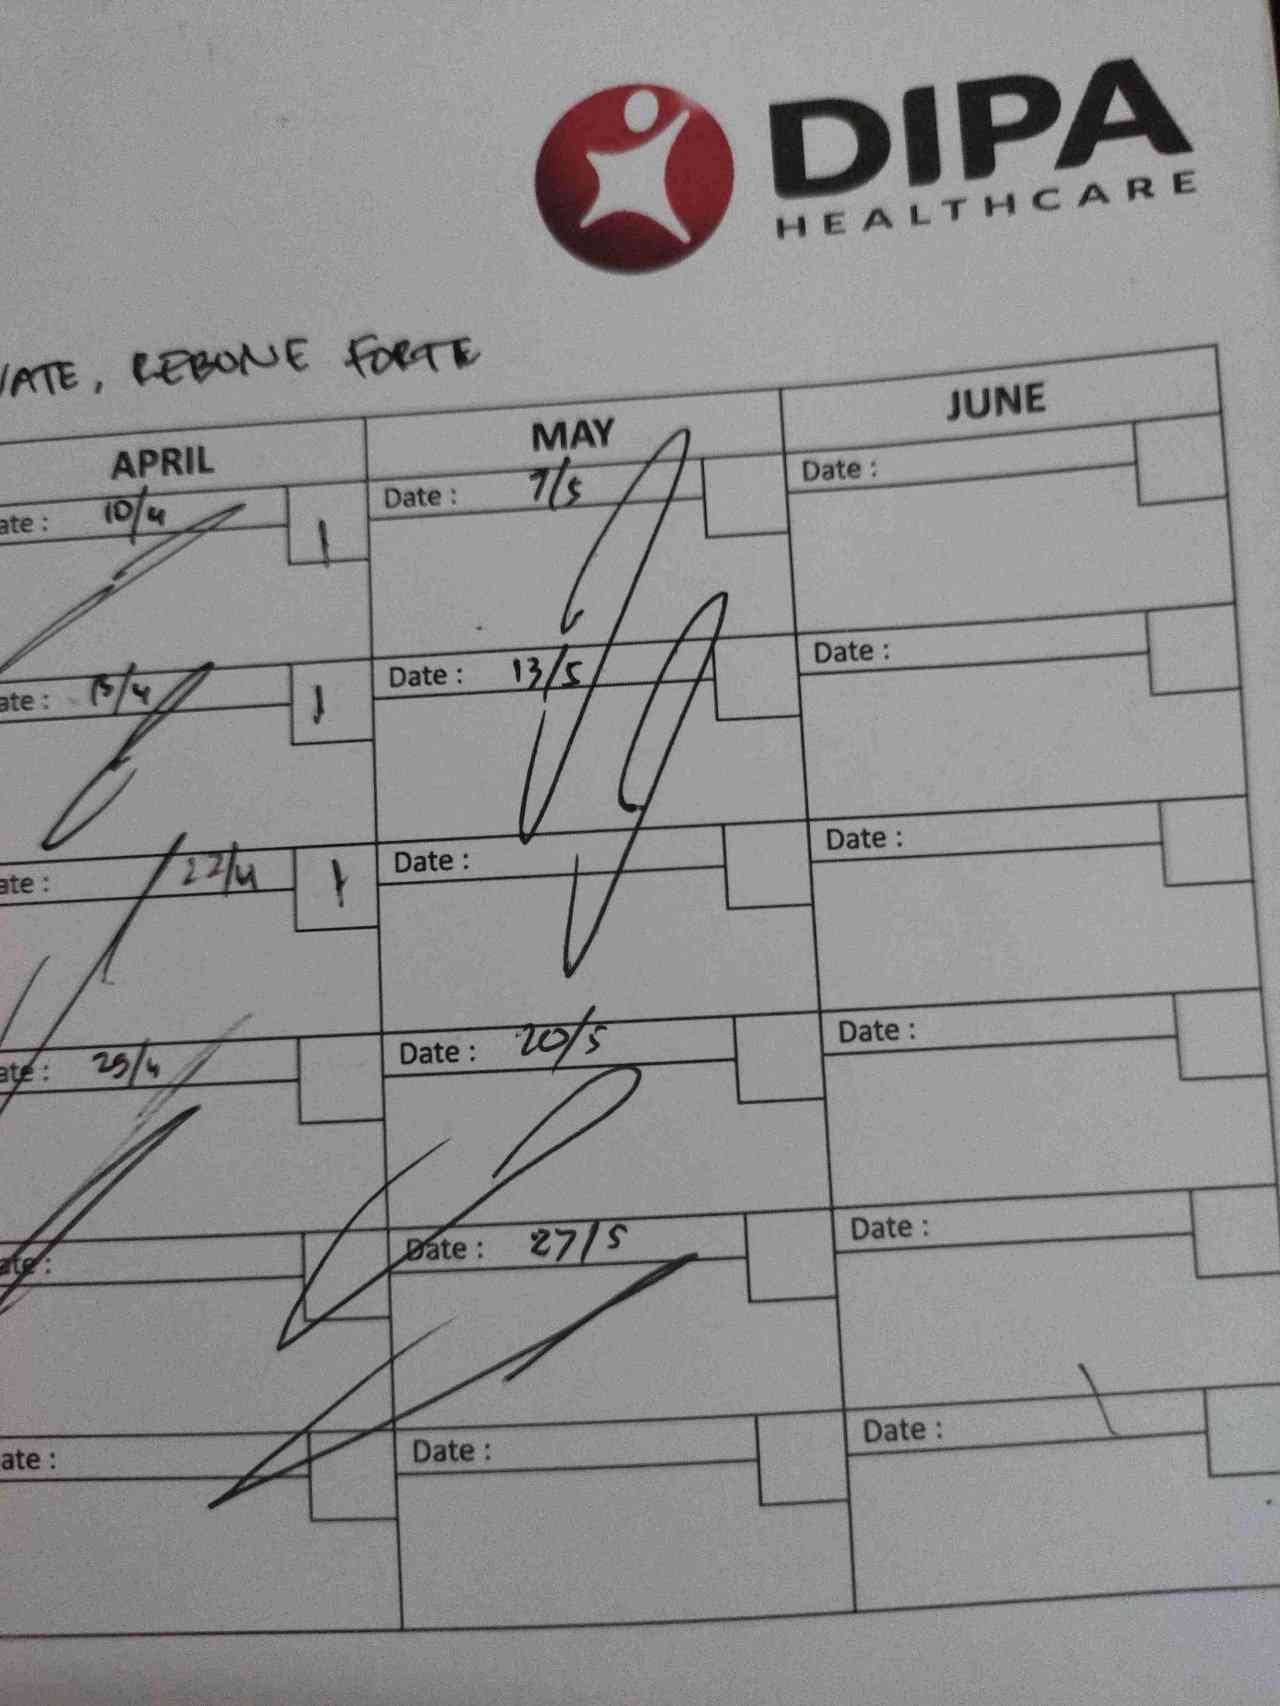 DIPA
HEALTHCARE
VATE, REBONE FORTE
APRIL MAY JUNE
ate : 10/4 1 Date : 7/5 Date :
ate : 15/4 1 Date : 13/5 Date :
ate : 22/4 1 Date : Date :
ate : 29/4 Date : 20/5 Date :
ate : Date : 27/5 Date :
ate : Date : Date :